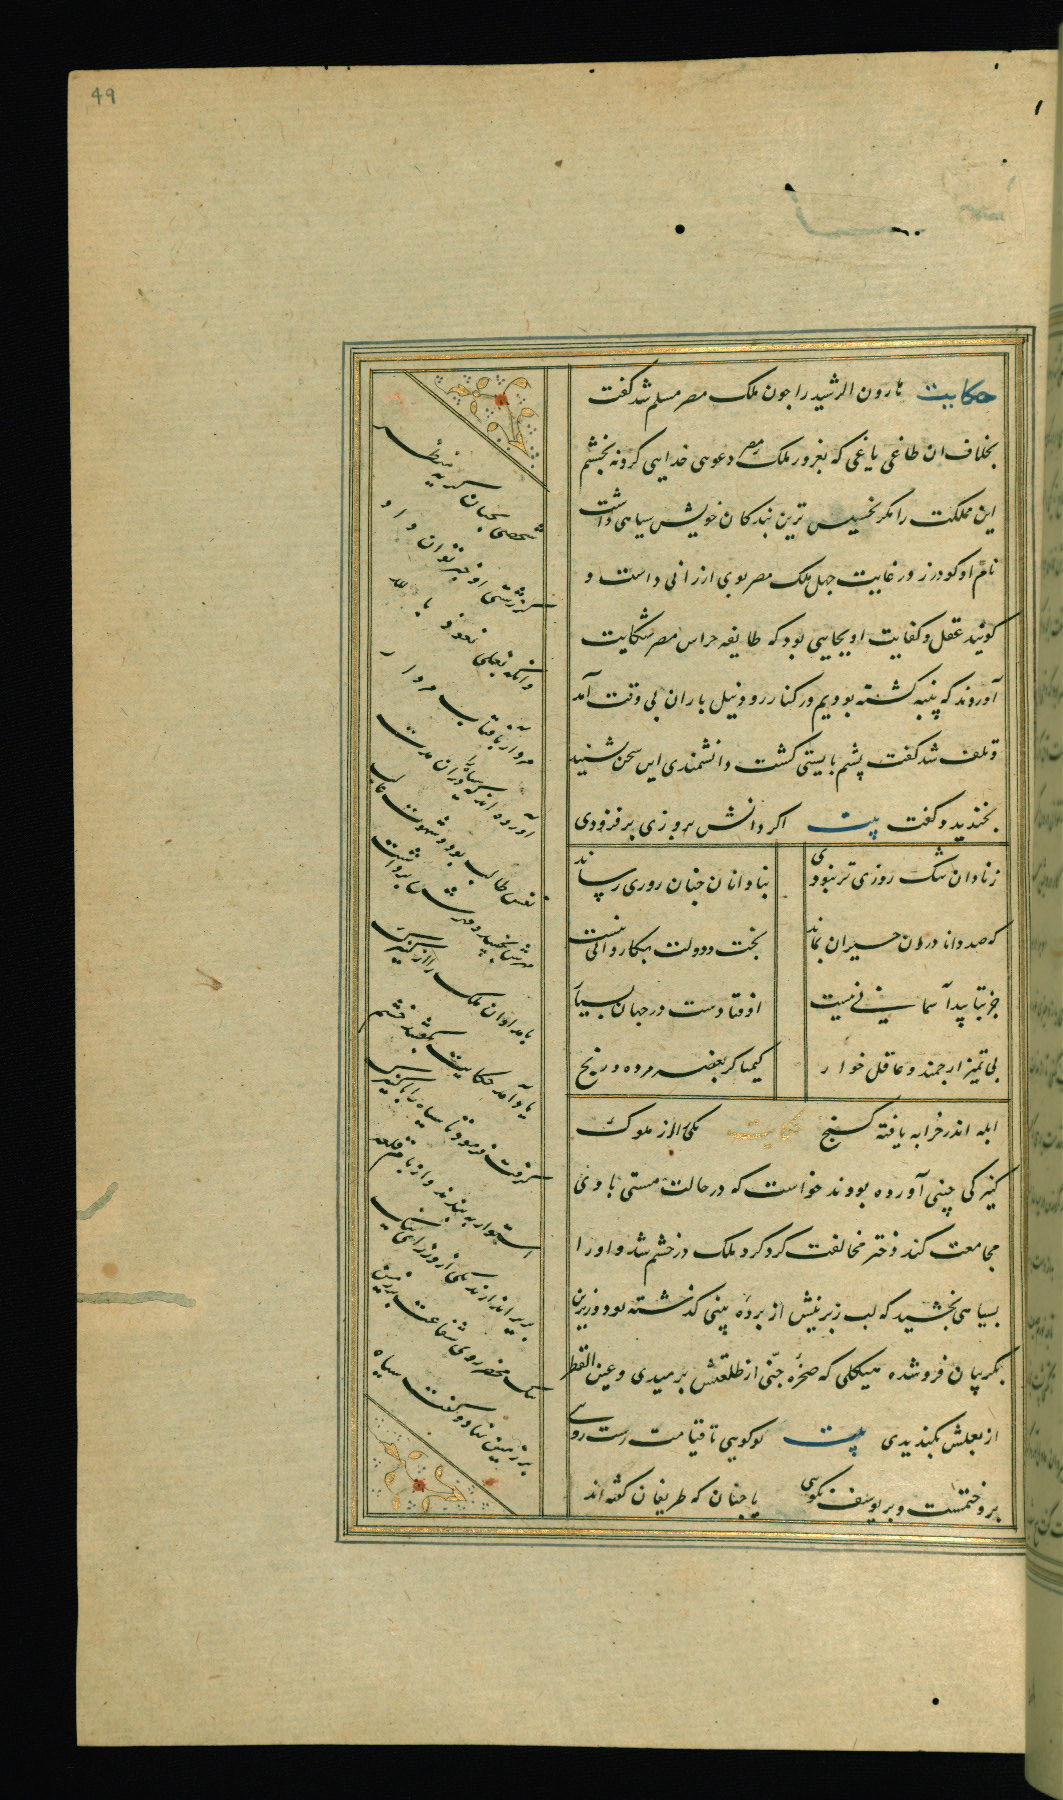 49
حکایت هارون الرشید را چون ملک مصر مسلم شد گفت
بخلاف ان طاغی یاغی که بغرور ملک مصر دعوی خدایی کرد نه بخشم
این مملکت را مکر بخسیس ترین بندکان خویش سیاهی داشت
نام او کودرز در غایت جهل ملک مصر بوی ارزانی داشت و
کویند عقل و کفایت او بجایی بود که طایفه حراس مصر شکایت
آوردند که پنبه کشته بودیم در کنار رود نیل باران بی وقت آمد
و تلف شد کفت پشم بایستی کشت دانشمندی این سخن شنید
بخندید و کفت بیت اکر دانش بروزی بر فزودی
زنادان تنک روزی تر نبودی بنادانان چنان روزی رساند
که صد دانا دران حیران بماند بخت و دولت بکاردانی نیست
جز بتایید آسمانی نیست اوفتادست در جهان بسیار
بی تمیز ارجمند و عاقل خوار کیمیاکر بغصه مرده و رنج
ابله اندر خرابه یافته کنج حکایت یکی را از ملوک
کنیزکی چینی آورده بودند خواست که در حالت مستی با وی
مجامعت کند دختر مخالفت کرد ملک در خشم شد و او را
بسیاهی بخشید که لب زبرینش از پرده بینی کذشته بود و زیرین
بکریبان فروشده هیکلی که صخره جنی از طلعتش برمیدی و عین القطر
از بغلش بکندیدی بیت تو کویی تا قیامت زشت رویی
برو ختمست و بر یوسف نکویی یا چنان که ظریفان کفته اند
شخصی نچنان کریه منظر
کز زشتی او خبر توان داد
وانکه بغلی نعوذ بالله
مردار بآفتاب مرداد
آورده اند که سیاه را دران مدت
نفس طالب بود و شهوت غالب
مهرش بجنبید و مهرش برداشت
بامدادان ملک کنیزک را
یاد آمد حکایت بکفتند خشم
کرفت و فرمود تا سیاه را با کنیزک
استوار ببندند و از بام قلعه
بزیر اندازند یکی از وزرای نیک
محضر روی شفاعت بر زمین
بر زمین نهاد و کفت سیاه